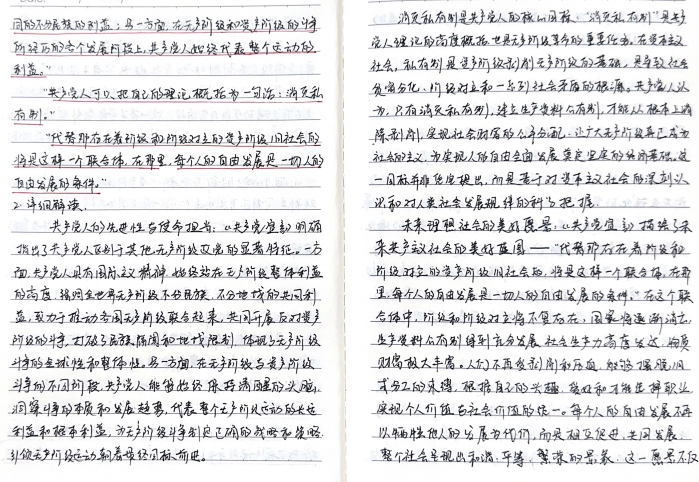 同的不分民族的利益；另一方面，在无产阶级和资产阶级的斗争
所经历的各个发展阶段上，共产党人始终代表整个运动的
利益。”
“共产党人可以把自己的理论概括为一句话：消灭私
有制。”
“代替那存在着阶级和阶级对立的资产阶级旧社会的
将是这样一个联合体，在那里，每个人的自由发展是一切人的
自由发展的条件。”
2.详细解读.
共产党人的先进性与使命担当：《共产党宣言》明确
指出了共产党人区别于其他无产阶级政党的显著特征。一方
面，共产党人具有国际主义精神，始终站在无产阶级整体利益
的高度，强调全世界无产阶级不分民族、不分地域的共同利
益，致力于推动各国无产阶级联合起来，共同开展反对资产
阶级的斗争，打破了民族隔阂和地域限制，体现了无产阶级
斗争的全球性和整体性。另一方面，在无产阶级与资产阶级
斗争的不同阶段，共产党人能够始终保持清醒的头脑，
洞察斗争的本质和发展趋势，代表整个无产阶级运动的长远
利益和根本利益，为无产阶级斗争制定正确的战略和策略，
引领无产阶级运动朝着最终目标前进。
消灭私有制是共产党人的核心目标：“消灭私有制”是共产
党人理论的高度概括，也是无产阶级革命的重要任务。在资本主义
社会，私有制是资产阶级剥削无产阶级的基础，是导致社会
贫富分化、阶级对立和一系列社会矛盾的根源。共产党人认
为，只有消灭私有制，建立生产资料公有制，才能从根本上消
除剥削，实现社会财富的公平分配，让广大无产阶级真正成为
社会的主人，为实现人的自由全面发展奠定坚实的经济基础。这
一目标并非凭空提出，而是基于对资本主义社会的深刻认
识和对人类社会发展规律的科学把握。
未来理想社会的美好愿景：《共产党宣言》描绘了未
来共产主义社会的美好蓝图——“代替那存在着阶级和
阶级对立的资产阶级旧社会的，将是这样一个联合体，在那
里，每个人的自由发展是一切人的自由发展的条件。”在这个联
合体中，阶级和阶级对立将不复存在，国家将逐渐消亡，
生产资料公有制得到充分发展，社会生产力高度发达，物质
财富极大丰富。人们不再受剥削和压迫，能够摆脱旧
式分工的束缚，根据自己的兴趣、爱好和才能选择职业，
实现个人价值与社会价值的统一。每个人的自由发展不再
以牺牲他人的发展为代价，而是相互促进、共同发展，
整个社会呈现出和谐、平等、繁荣的景象。这一愿景不仅